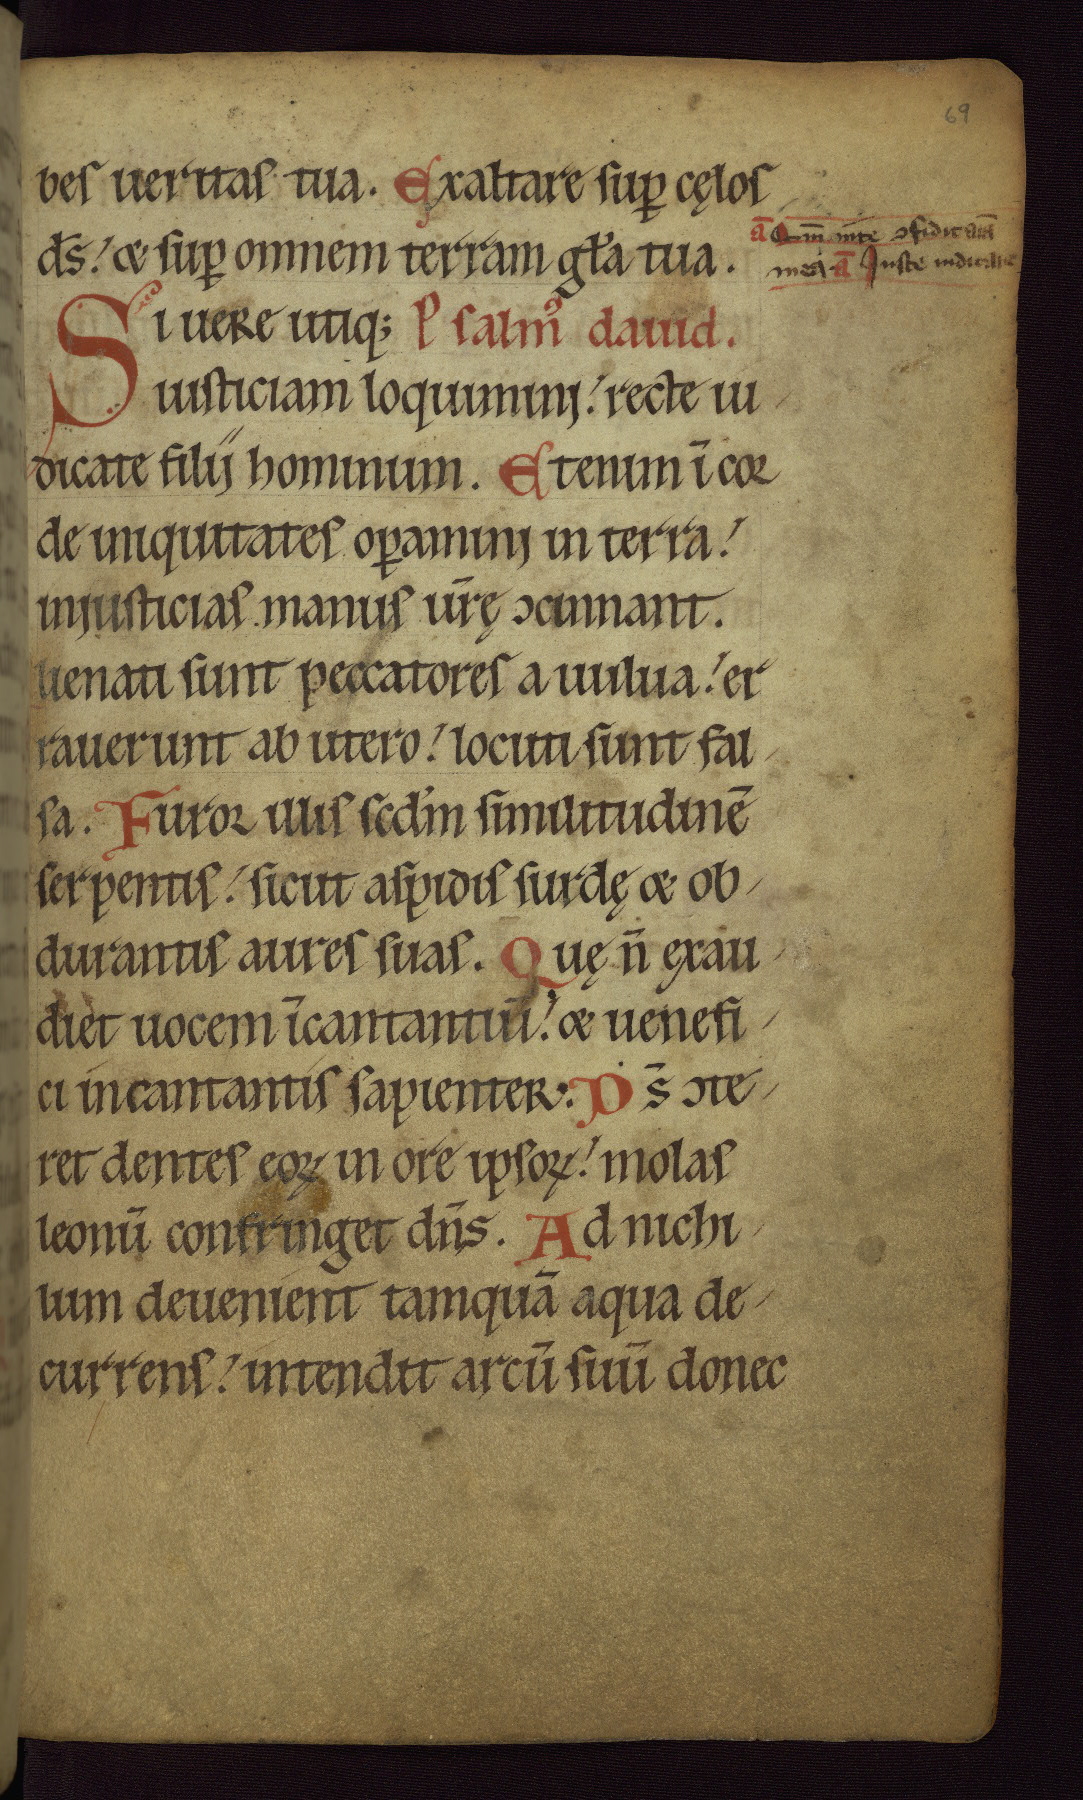 69
bes ueritas tua. Exaltare sup̱ cęlos
ds̄! & sup̱ omnem terram gl̄a tua.
ā Qm̄ in te ɔfidit aīa
mea ā Iuste iudicate
Si uere utiq; Psalm᷒ dauid.
iusticiam loquiminj! recte iu
dicate filij hominum. Etenim ī cor
de iniquitates op̱aminj in terra!
injusticias manus ur̄ę ɔcinnant.
uenati sunt peccatores a uulua! er
rauerunt ab utero! locuti sunt fal
sa. Furor illis scd̄m similitudinē
serpentis! sicut aspidis surdę & ob
durantis aures suas. Quę n̄ exau
diet uocem īcantantiū! & uenefi
ci incantantis sapienter. Ds̄ ɔte
ret dentes eoꝝ in ore ipsoꝝ! molas
leonū confringet dn̄s. Ad nichi
lum deuenient tamquā aqua de
currens! intendit arcū suū donec